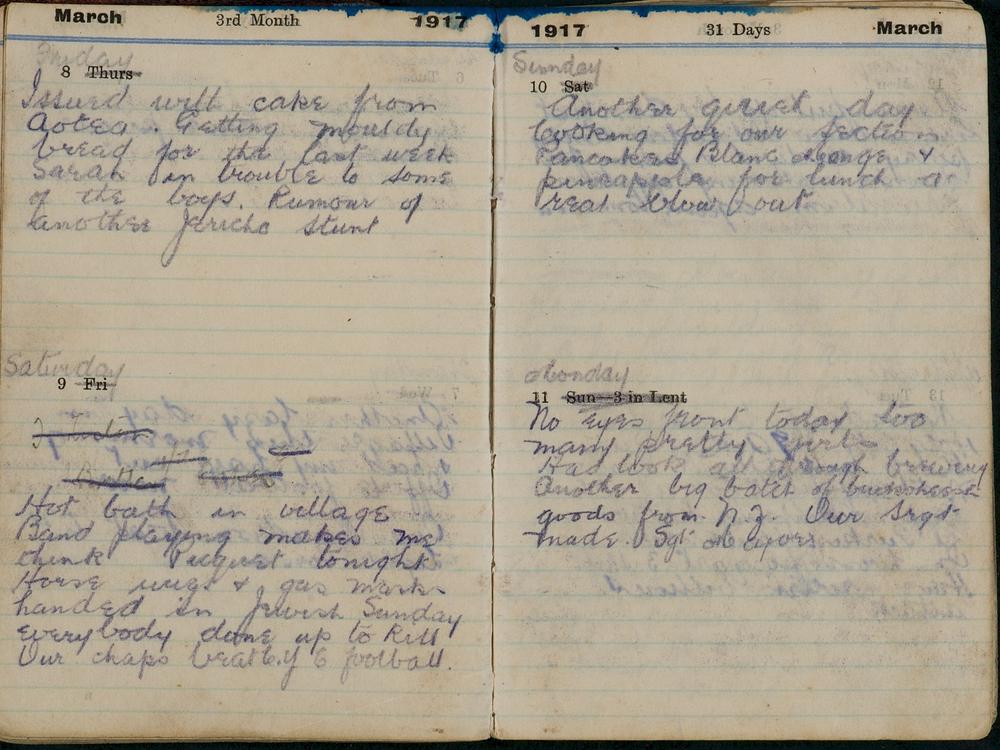 March 3rd Month 1917
Friday
8 Thurs
Issued with cake from
Aotea. Getting mouldy
bread for the last week
Sarah in trouble to some
of the boys. Rumour of
another Jericho Stunt
Saturday
9 Fri
Hot bath in village
Band playing makes me
think tonight
Horse rugs & gas masks
handed in Jewish Sunday
everybody done up to kill
Our chaps beat 6 football.
1917 31 Days March
Sunday
10 Sat
Another quiet day
Cooking for our section
Pancakes, Blanc Mange &
pineapple for lunch a
real blow out
Monday
11 Sun—3 in Lent
No eyes front today too
many pretty girls
Had look all through brewery
Another big batch of buckshee
goods from N.Z. Our Srgt
made. Sgt